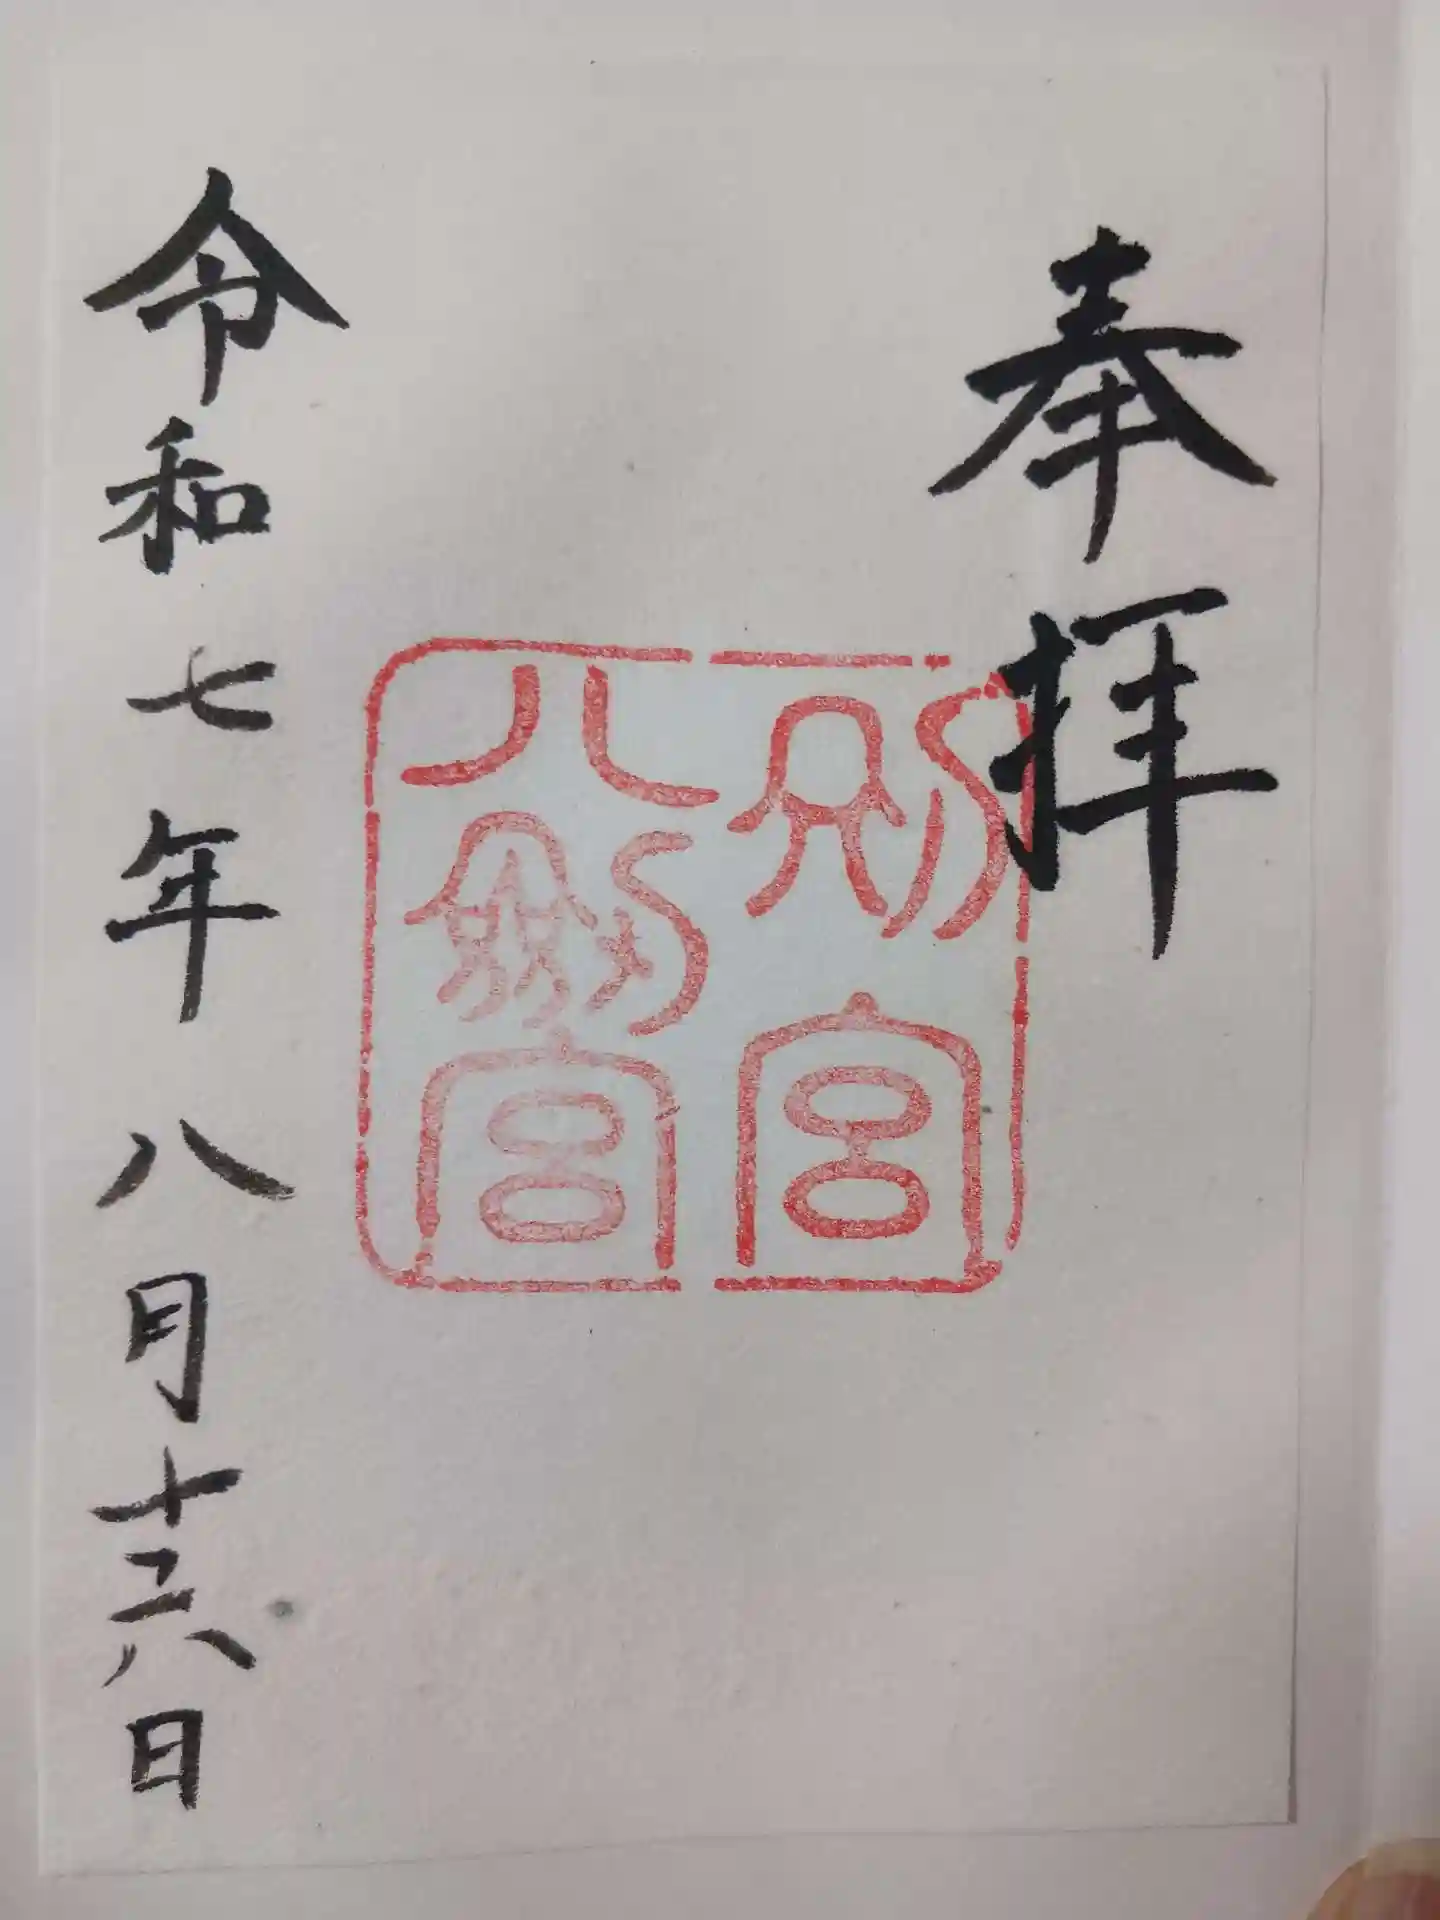 奉拝
別宮
八劔宮
令和七年八月十六日